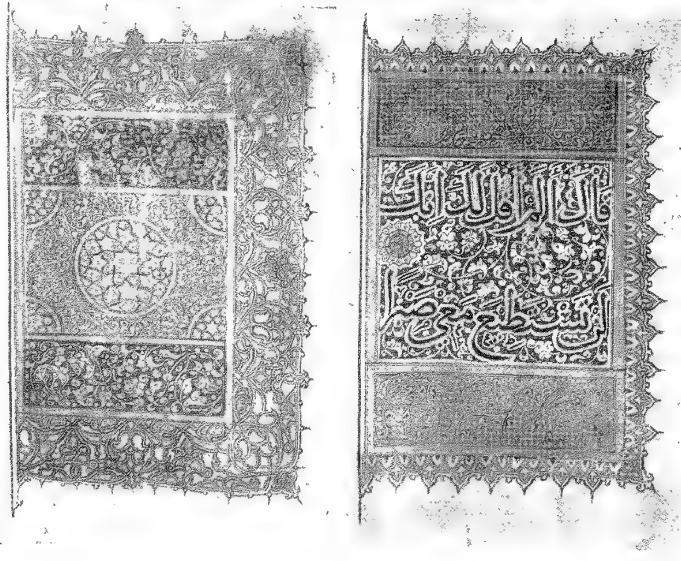 قال ألم أقل لك إنك
لن تستطيع معي صبرا